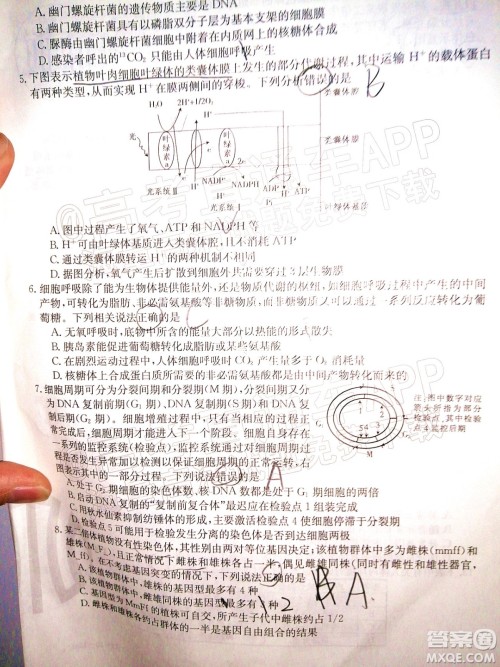 A. 幽门螺旋杆菌的遗传物质主要是DNA
B. 幽门螺旋杆菌具有以磷脂双分子层为基本支架的细胞膜
C. 脲酶由幽门螺旋杆菌细胞中附着在内质网上的核糖体合成
D. 感染者呼出的¹³CO₂只能由人体细胞呼吸产生
5. 下图表示植物叶肉细胞叶绿体的类囊体膜上发生的部分代谢过程,其中运输H⁺的载体蛋白
有两种类型,从而实现H⁺在膜两侧间的穿梭。下列分析错误的是
B
H₂O 2H⁺+1/2O₂ 类囊体腔
H⁺
光 叶绿素a 叶绿素a 类囊体膜
光系统Ⅱ H⁺ NADP⁺ NADPH ADP Pi ATP
光系统Ⅰ 叶绿体基质
A. 图中过程产生了氧气、ATP和NADPH等
B. H⁺可由叶绿体基质进入类囊体腔,此过程不消耗ATP
C. 通过类囊体膜转运H⁺的两种机制不相同
D. 据图分析,氧气产生后扩散到细胞外共需要穿过3层生物膜
6. 细胞呼吸除了能为生物体提供能量外,还是物质代谢的枢纽,如细胞呼吸过程中产生的中间
产物,可转化为脂肪、非必需氨基酸等非糖物质,而非糖物质又可以通过一系列反应转化为葡
萄糖。下列相关说法正确的是
A. 无氧呼吸时,底物中所含的能量大部分以热能的形式散失
B. 胰岛素能促进葡萄糖转化成脂肪或某些氨基酸
C. 在剧烈运动过程中,人体细胞呼吸时CO₂产生量多于O₂消耗量
D. 糖体上合成蛋白质所需要的非必需氨基酸都是由中间产物转化而来的
7. 细胞周期可分为分裂间期和分裂期(M期),分裂间期又分
为DNA复制前期(G₁期)、DNA复制期(S期)和DNA复
制后期(G₂期)。细胞增殖过程中,只有当前的过程正
常完成后,细胞才能进入下一个阶段。细胞自身存在
一系列的监控系统(检验点),监控系统通过对细胞过
程是否发生异常加以检测以保证细胞周期的正常运转,右
图表示其中的一部分过程。下列说法错误的是
A
注:图中数字对应
箭头所指为部分
检验点,其中检验
点4监控后期
1 2 3 4 5 S G₁ G₂ M
A. 处于G₂期细胞的染色体数、核DNA数都是处于G₁期细胞的两倍
B. 启动DNA复制的“复制前复合体”最迟应在检验点1组装完成
C. 用秋水仙素抑制纺锤体的形成,主要激活检验点4使细胞停滞于分裂期
D. 检验点5可能用于检验发生分离的染色体是否到达细胞两极
8. 某二倍体植物没有性染色体,其性别由两对等位基因决定;该植物群体中多为雌株(mmff)和
A. 该植物群体中,雄株的基因型最多有4种
B. 该植物群体中,雌株的基因型最多有1种
C. 基因型为MmFf的植株可自交,所产生子代中雌株约占1/2
D. 雌株和雄株各约占群体的一半是基因自由组合的结果
A.
答案圈
MXQE.COM